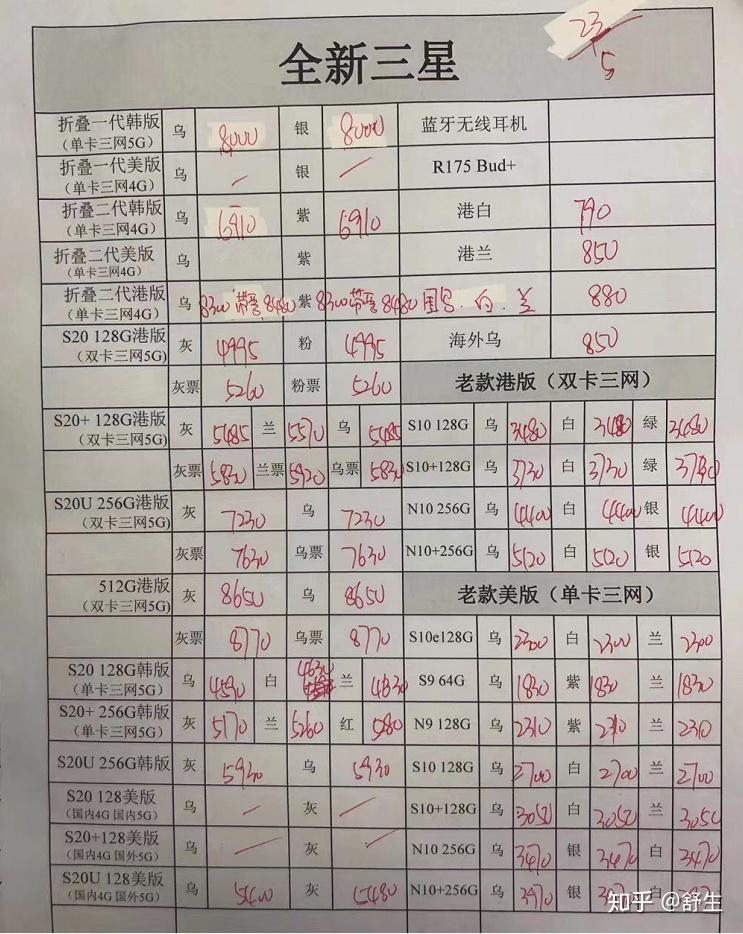 23/5
全新三星
折叠一代韩版 (单卡三网5G) 乌 8000 银 8000 蓝牙无线耳机
折叠一代美版 (单卡三网4G) 乌 / 银 / R175 Bud+
折叠二代韩版 (单卡三网4G) 乌 6910 紫 6910 港白 790
折叠二代美版 (单卡三网4G) 乌 紫 港兰 850
折叠二代港版 (单卡三网4G) 乌 8300 带票 8480 紫 8300 带票 8480 国号.白.兰 880
S20 128G港版 (双卡三网5G) 灰 4995 粉 4995 海外乌 850
灰票 5260 粉票 5260 老款港版（双卡三网）
S20+ 128G港版 (双卡三网5G) 灰 5485 兰 5570 乌 5485 S10 128G 乌 3480 白 3480 绿 3480
灰票 5830 兰票 5920 乌票 5830 S10+128G 乌 3730 白 3730 绿 3730
S20U 256G港版 (双卡三网5G) 灰 7230 乌 7230 N10 256G 乌 4400 白 4400 银 4400
灰票 7630 乌票 7630 N10+256G 乌 5120 白 5120 银 5120
512G港版 (双卡三网5G) 灰 8650 乌 8650 老款美版（单卡三网）
灰票 8770 乌票 8770 S10e128G 乌 2300 白 2300 兰 2300
S20 128G韩版 (单卡三网5G) 乌 4530 白 4630 兰 4830 S9 64G 乌 1830 紫 1830 兰 1830
S20+ 256G韩版 (单卡三网5G) 灰 5170 兰 5260 红 N9 128G 乌 2310 紫 2310 兰 2310
S20U 256G韩版 灰 5930 乌 5930 S10 128G 乌 2700 白 2700 兰 2700
S20 128美版 (国内4G 国内5G) 乌 / 灰 / S10+128G 乌 3050 白 3050 兰 3050
S20+128美版 (国内4G 国外5G) 乌 / 灰 / N10 256G 乌 3470 银 3470 白 3470
S20U 128美版 (国内4G 国外5G) 乌 5400 灰 5480 N10+256G 乌 3970 银 白
知乎 @舒生